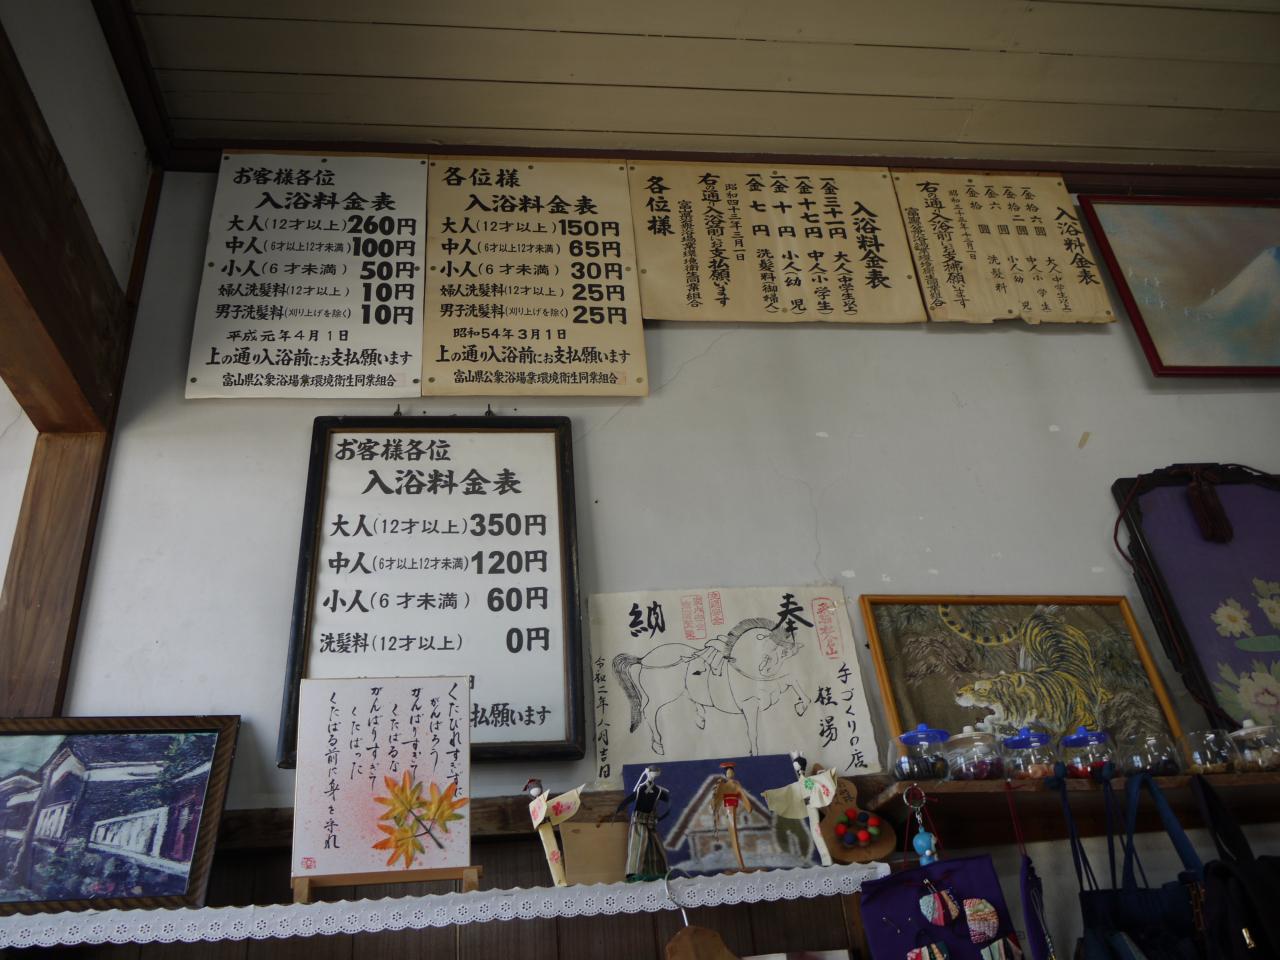 お客様各位
入浴料金表
大人(12才以上)260円
中人(6才以上12才未満)100円
小人(6才未満)50円
婦人洗髪料(12才以上)10円
男子洗髪料(刈り上げを除く)10円
平成元年4月1日
上の通り入浴前にお支払願います
富山県公衆浴場業環境衛生同業組合
各位様
入浴料金表
大人(12才以上)150円
中人(6才以上12才未満)65円
小人(6才未満)30円
婦人洗髪料(12才以上)25円
男子洗髪料(刈り上げを除く)25円
昭和54年3月1日
上の通り入浴前にお支払願います
富山県公衆浴場業環境衛生同業組合
入浴料金表
一金三十一円 大人(中学生以上)
一金十七円 中人(小学生)
一金十円 小人(幼児)
一金七円 洗髪料(御婦人)
昭和四十三年三月一日
右の通り入浴前にお支払願います
富山県公衆浴場業環境衛生同業組合
各位様
入浴料金表
一金拾六圓 大人(中学生以上)
一金拾二圓 中人(小学生)
一金六圓 小人(幼児)
洗髪料
右の通り入浴前にお支拂願います
お客様各位
入浴料金表
大人(12才以上)350円
中人(6才以上12才未満)120円
小人(6才未満)60円
洗髪料(12才以上)0円
払願います
奉
納
手づくりの店
桂湯
令和二年八月吉日
くたびれすぎずに
がんばろう
がんばりすぎて
くたばるな
がんばりすぎて
くたばった
くたばる前に身を守れ